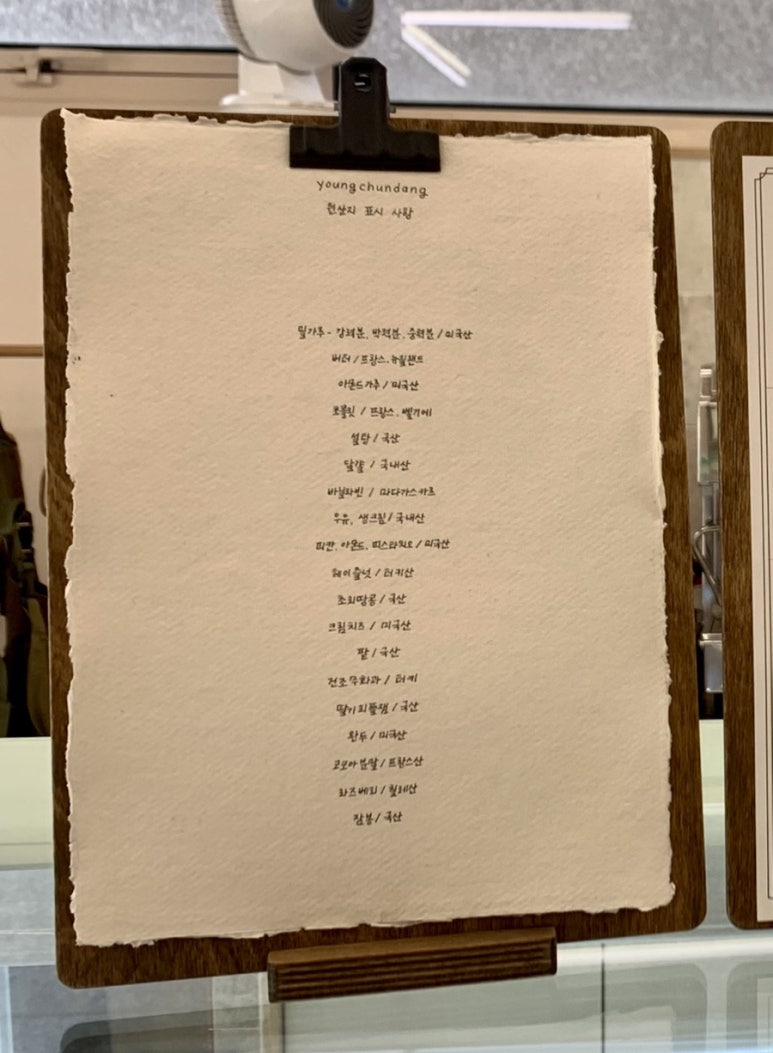 youngchundang
원산지 표시 사항
밀가루 - 강력분, 박력분, 중력분 / 미국산
버터 / 프랑스, 뉴질랜드
아몬드가루 / 미국산
초콜릿 / 프랑스, 벨기에
설탕 / 국산
달걀 / 국내산
바닐라빈 / 마다가스카르
우유, 생크림 / 국내산
피칸, 아몬드, 피스타치오 / 미국산
헤이즐넛 / 터키산
조희땅콩 / 국산
크림치즈 / 미국산
팥 / 국산
건조무화과 / 터키
딸기리플잼 / 국산
완두 / 미국산
코코아분말 / 프랑스산
라즈베리 / 칠레산
잠봉 / 국산